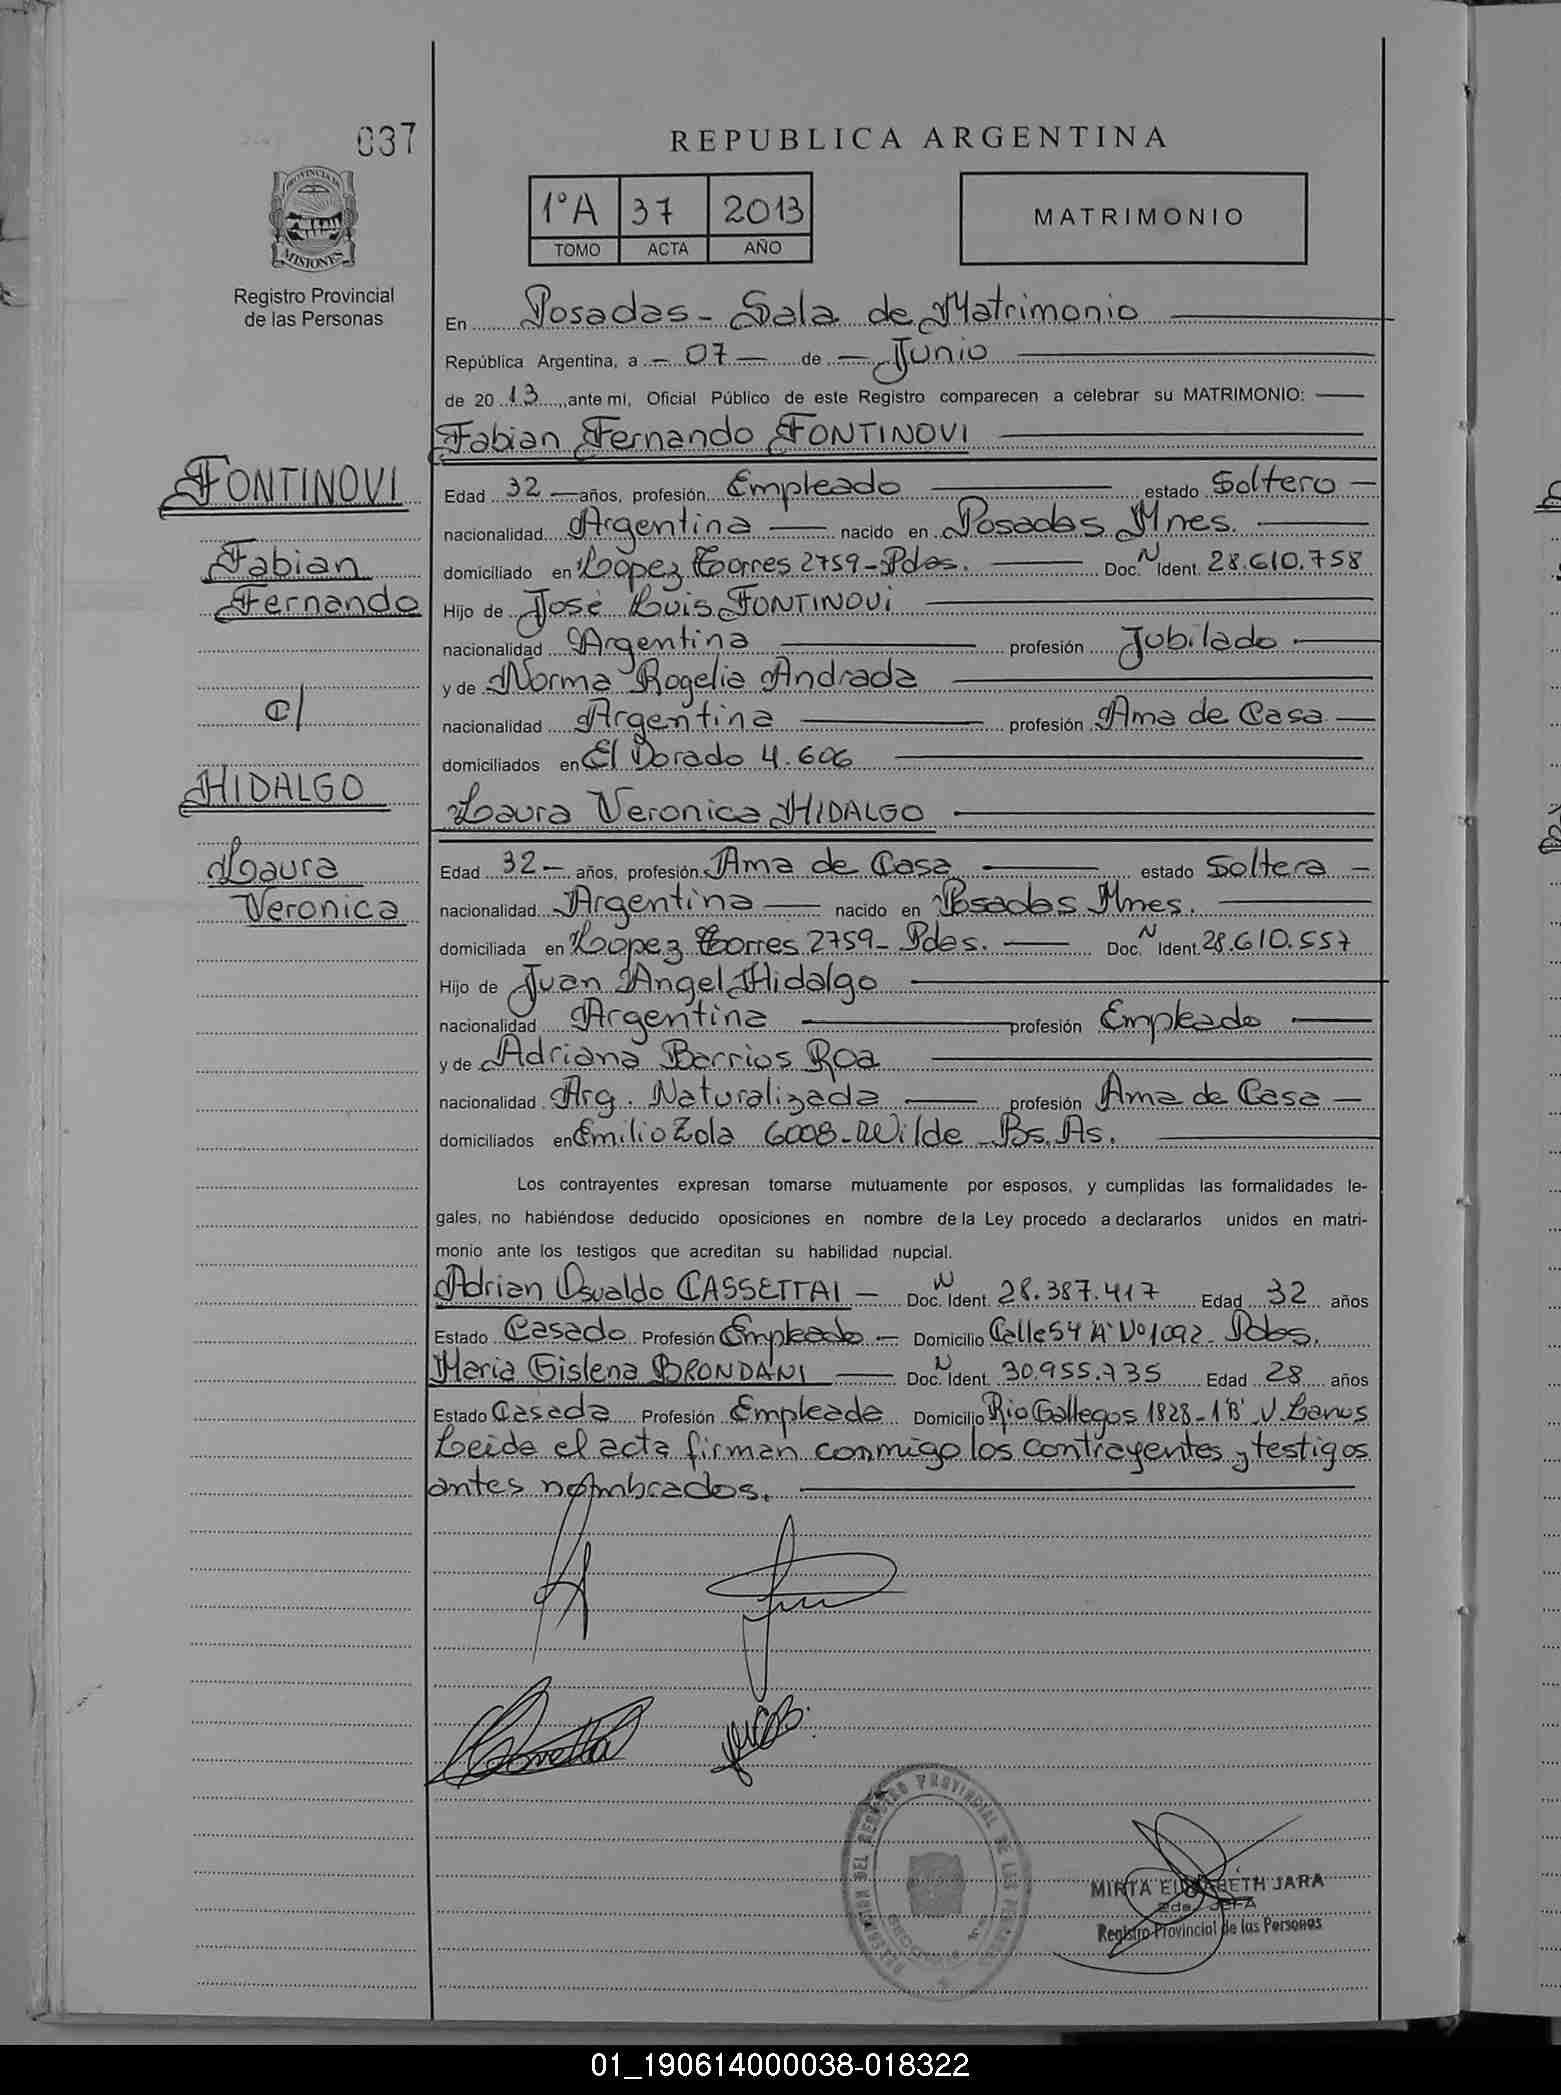 037
REPUBLICA ARGENTINA
1°A 37 2013
TOMO ACTA AÑO
MATRIMONIO
PROVINCIA DE
MISIONES
Registro Provincial
de las Personas
En Posadas - Sala de Matrimonio
República Argentina, a - 07 - de - Junio
de 20 13, ante mi, Oficial Público de este Registro comparecen a celebrar su MATRIMONIO:
Fabian Fernando FONTINOVI
FONTINOVI
Fabian
Fernando
c/
HIDALGO
Laura
Veronica
Edad 32 años, profesión Empleado estado Soltero
nacionalidad Argentina nacido en Posadas Mnes.
domiciliado en Lopez Torres 2759 - Pdas. Doc. N Ident. 28.610.758
Hijo de José Luis FONTINOVI
nacionalidad Argentina profesión Jubilado
y de Norma Rogelia Andrada
nacionalidad Argentina profesión Ama de Casa
domiciliados en El Dorado 4.606
Laura Veronica HIDALGO
Edad 32 años, profesión Ama de Casa estado Soltera
nacionalidad Argentina nacido en Posadas Mnes.
domiciliada en Lopez Torres 2759 - Pdas. Doc. N Ident. 28.610.557
Hijo de Juan Angel Hidalgo
nacionalidad Argentina profesión Empleado
y de Adriana Barrios Roa
nacionalidad Arg. Naturalizada profesión Ama de Casa
domiciliados en Emilio Zola 6008 - Wilde - Bs. As.
Los contrayentes expresan tomarse mutuamente por esposos, y cumplidas las formalidades le-
gales, no habiéndose deducido oposiciones en nombre de la Ley procedo a declararlos unidos en matri-
monio ante los testigos que acreditan su habilidad nupcial.
Adrian Osvaldo CASSETTAI - Doc. N Ident. 28.387.417 Edad 32 años
Estado Casado Profesión Empleado - Domicilio Calle 54 A Nº 1092 - Pdas.
Maria Gislena BRONDANI Doc. N Ident. 30.955.735 Edad 28 años
Estado Casada Profesión Empleada Domicilio Rio Gallegos 1828 - 1'B' V. Lanus
Leida el acta firman conmigo los contrayentes y testigos
antes nombrados.
MIRTA ELIZABETH JARA
2da. JEFA
Registro Provincial de las Personas
01_190614000038-018322